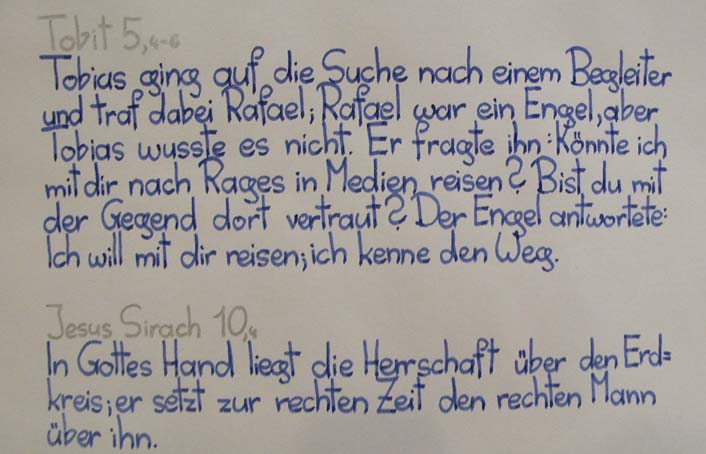 Tobit 5,4-6
Tobias ging auf die Suche nach einem Begleiter
und traf dabei Rafael; Rafael war ein Engel, aber
Tobias wusste es nicht. Er fragte ihn: Könnte ich
mit dir nach Rages in Medien reisen? Bist du mit
der Gegend dort vertraut? Der Engel antwortete:
Ich will mit dir reisen; ich kenne den Weg.
Jesus Sirach 10,4
In Gottes Hand liegt die Herrschaft über den Erd=
kreis; er setzt zur rechten Zeit den rechten Mann
über ihn.